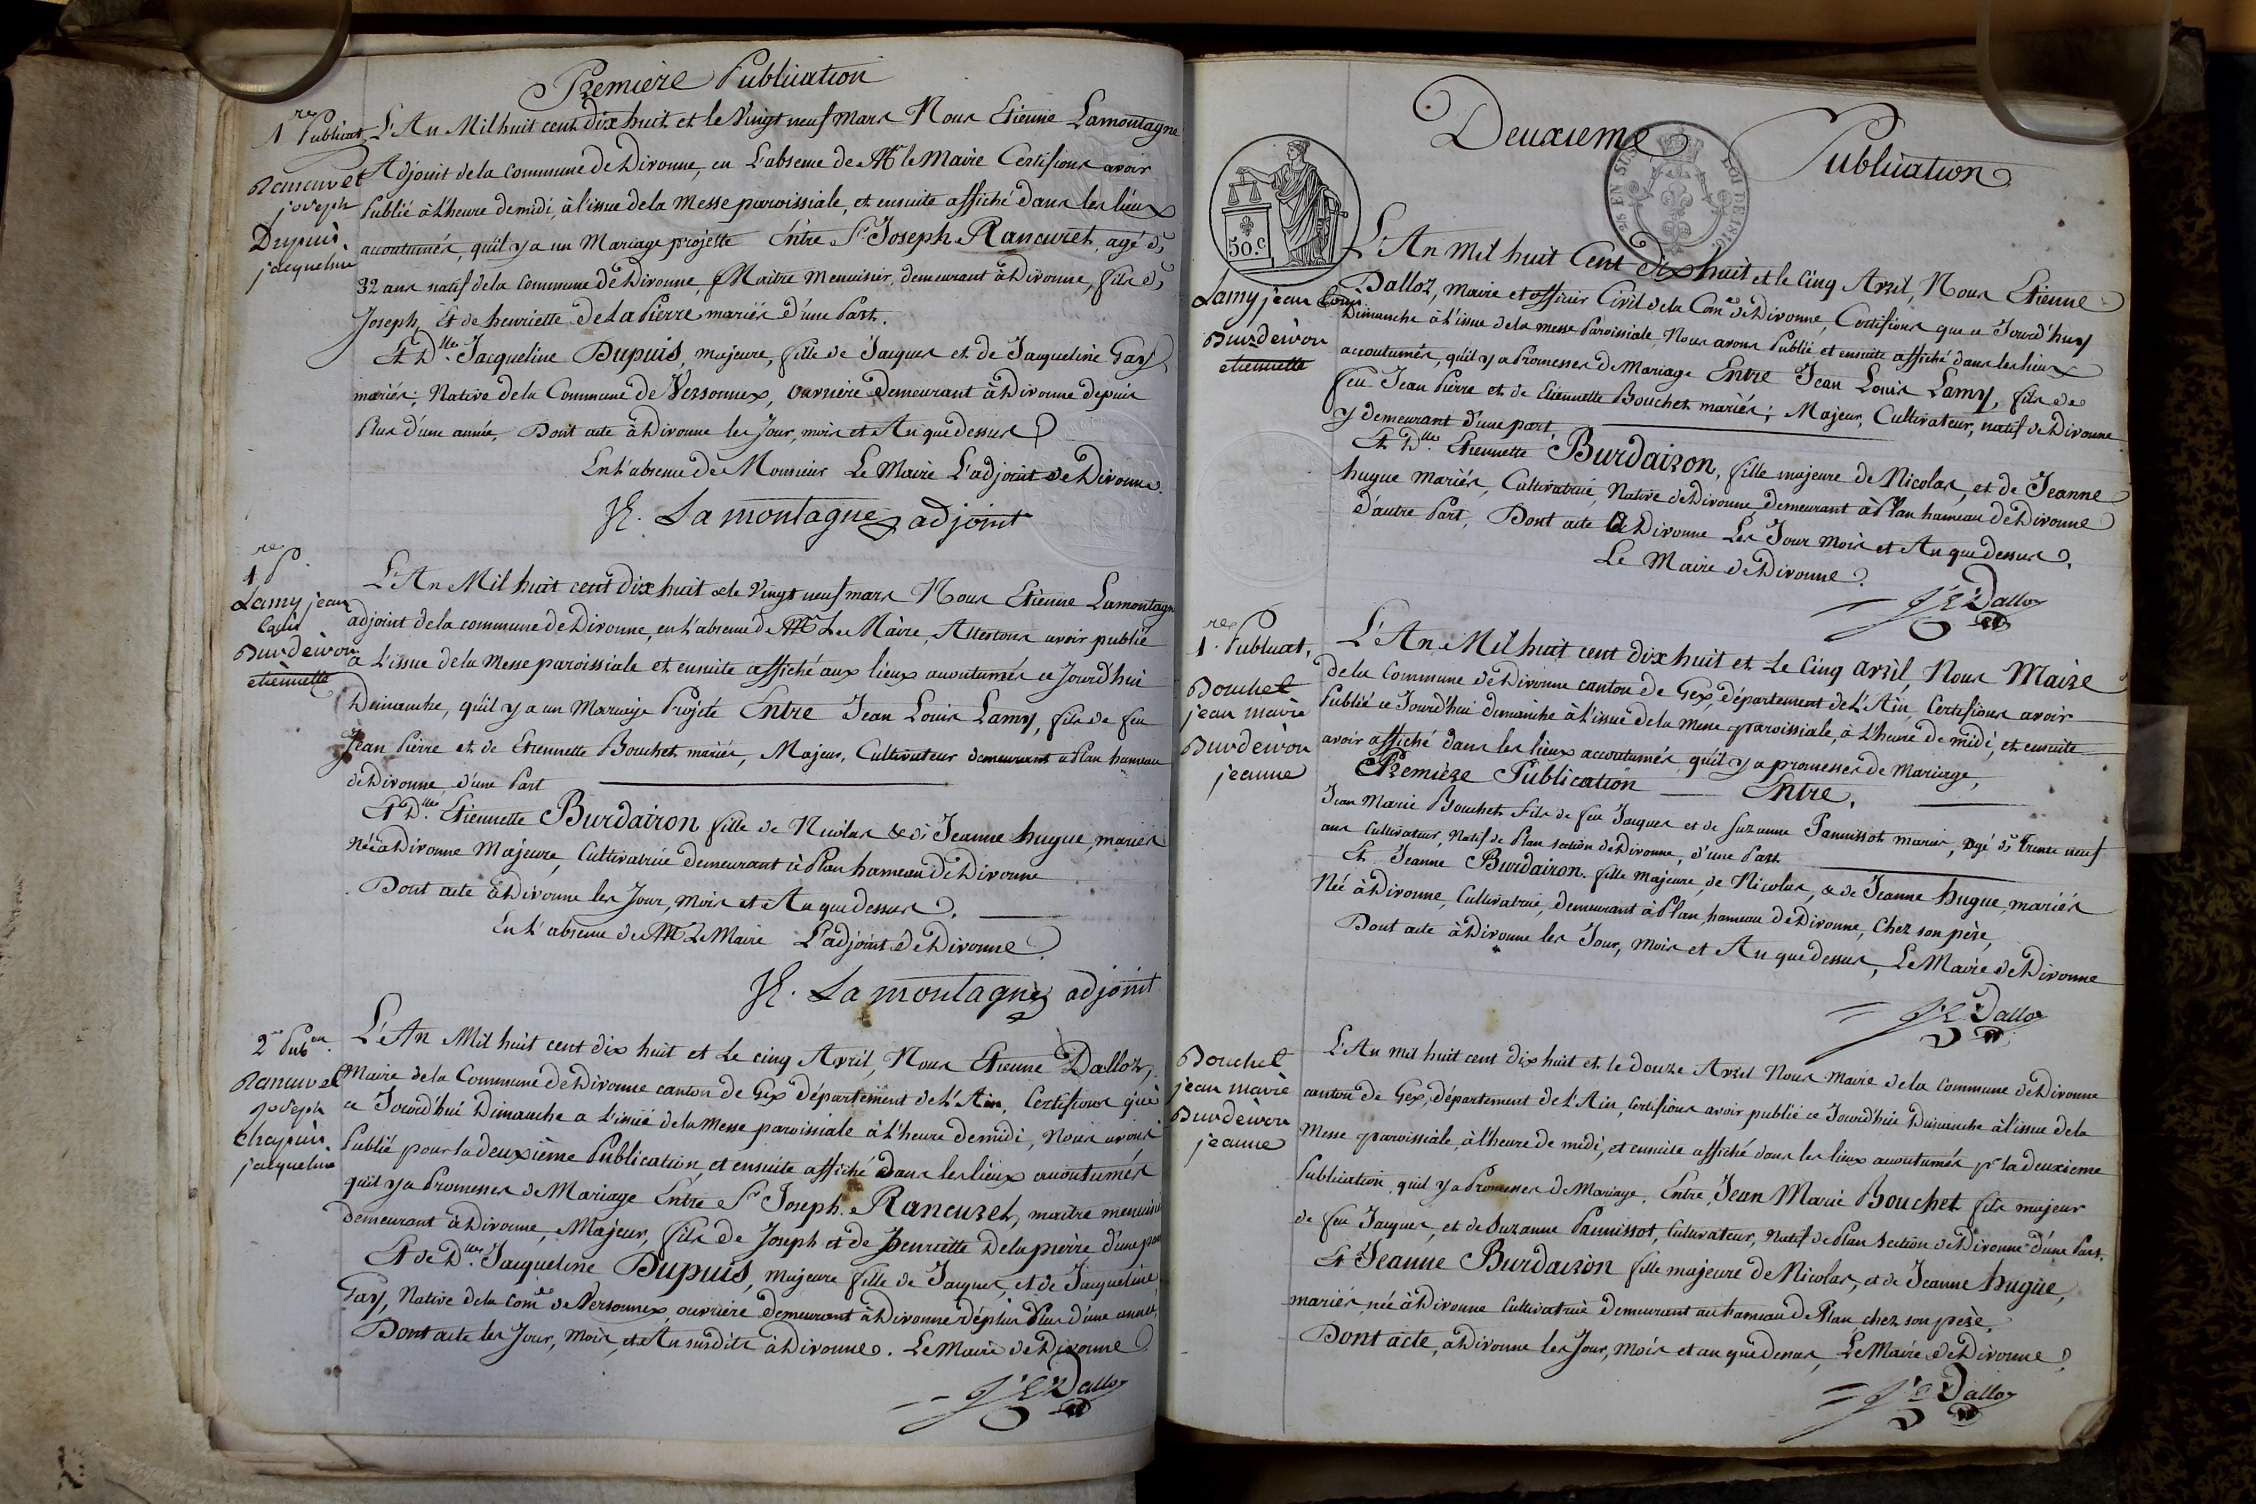 Premiere Publication
1re Publicat
Rancuret
joseph
Dupuis
jacqueline
L'An Mil huit cent dix huit et le Vingt neuf mars Nous Etienne Lamontagne
Adjoint de la commune de Divonne, en L'absence de Mr le Maire Certifions avoir
Publié à L'heure de midi, à l'issue de la Messe paroissiale, et ensuite affiché dans les lieux
accoutumés, qu'il y a un Mariage projetté Entre Sr Joseph Rancuret, agé de
32 ans natif de la Commune de Divonne, Maitre Menuisier, demeurant à Divonne, fils de
Joseph, Et de henriette De La Pierre mariés d'une Part.
Et Dlle Jacqueline Dupuis, majeure, fille de Jacques et de Jacqueline Gay
mariés, Native de la Commune de Versonnex, ouvriere demeurant à Divonne depuis
Plus d'une année, Dont acte à Divonne les Jour, mois et An que dessus
En L'absence de Monsieur Le Maire L'adjoint de Divonne.
JE. Lamontagne adjoint
1re P.
Lamy jean
Louis
Burdeiron
etiennette
L'An Mil huit cent Dix huit & le Vingt neuf mars Nous Etienne Lamontagne
adjoint de la commune de Divonne, en L'absence de Mr Le Maire, Attestons avoir publié
a L'issue de la Messe paroissiale et ensuite affiché aux lieux accoutumés ce Jourd'hui
Dimanche, qu'il y a un Mariage Projeté Entre Jean Louis Lamy, fils de feu
Jean Pierre et de Etiennette Bouchet mariés, Majeur, Cultivateur demeurant a Plan hameau
de Divonne d'une Part
Et Dlle Etiennette Burdairon fille de Nicolas & de Jeanne hugue, mariés
Née a Divonne Majeure, Cultivatrice demeurant à Plan hameau de Divonne
Dont acte à Divonne les Jour, mois et An que dessus.
En L'absence de Mr Le Maire L'adjoint de Divonne
JE. Lamontagne adjoint
2me Pubon.
Rancuret
joseph
jacqueline
L'An Mil huit cent dix huit et Le cinq Avril, Nous Etienne Dalloz,
Maire de la Commune de Divonne canton de Gex département de L'Ain, Certifions que
ce Jourd'hui Dimanche a L'issue de la Messe paroissiale à L'heure de midi, Nous avons
Publié pour la deuxième Publication, et ensuite affiché Dans les lieux accoutumés
qu'il y a Promesses de Mariage Entre Sr Joseph Rancuret, maitre menuisier
demeurant à Divonne, Majeur, fils de Joseph et de Henriette Delapierre d'une part
Et de Dlle Jacqueline Dupuis, Majeure fille de Jacques, et de Jacqueline
Gay, Native de la Comne de Versonnex, ouvriere demeurant à Divonne dépuis Plus d'une année
Dont acte les Jour, Mois, et An susdits à Divonne. Le Maire de Divonne
JE Dalloz
Deuxieme Publication
50.c
Lamy jean Louis
Burdeiron
etiennette
L'An mil huit Cent Dix huit et le Cinq Avril, Nous Etienne
Dalloz, Maire et officier Civil de la Comne de Divonne, Certifions que ce Jourd'huy
Dimanche à L'issue de la messe Paroissiale, Nous avons Publié et ensuite affiché dans les lieux
accoutumés, qu'il y a Promesses de Mariage Entre Jean Louis Lamy, fils de
feu Jean Pierre et de Etiennette Bouchet mariés; Majeur, Cultivateur, natif de Divonne
y demeurant d'une part.
Et Dlle Etiennette Burdairon, fille majeure de Nicolas, et de Jeanne
hugue mariés, Cultivatrice, Native de Divonne demeurant à Plan hameau de Divonne
D'autre Part, Dont acte à Divonne Les Jour Mois et An que dessus.
Le Maire de Divonne.
JE Dalloz
1re Publicat,
Bouchet
jean marie
Burdeiron
jeanne
L'An Mil huit cent dix huit et Le Cinq avril, Nous Maire
de la Commune de Divonne canton de Gex, département de L'Ain, Certifions avoir
Publié ce Jourd'hui dimanche à L'issue de la Messe paroissiale, à L'heure de midi, et ensuite
avoir affiché dans les lieux accoutumés qu'il y a promesses de Mariage,
Première Publication Entre.
Jean Marie Bouchet Fils de feu Jacques et de Suzanne Pannissot mariés, agé de Trente neuf
ans Cultivateur, Natif de Plan section de Divonne, d'une Part
Et Jeanne Burdairon, fille majeure, de Nicolas, & de Jeanne hugue, mariés
Née à Divonne, Cultivatrice, demeurant à Plan, hameau de Divonne, Chez son père,
Dont acte à Divonne les Jour, Mois et An que dessus, Le Maire de Divonne
JE Dalloz
Bouchet
jean marie
Burdeiron
jeanne
L'An mil huit cent dix huit et le douze Avril Nous Maire de la Commune de Divonne
canton de Gex, département de L'Ain, Certifions avoir publié ce Jourd'hui Dimanche à l'issue de la
Messe paroissiale, à l'heure de midi, et ensuite affiché dans les lieux accoutumés pr la deuxieme
Publication, qu'il y a Promesses de Mariage, Entre Jean Marie Bouchet fils majeur
de feu Jacques, et de Suzanne Pannissot, Cultivateur, Natif de Plan Section de Divonne d'une Part.
Et Jeanne Burdairon fille majeure de Nicolas, et de Jeanne hugue,
mariés née à Divonne Cultivatrice demeurant au hameau de Plan chez son père,
Dont acte, à Divonne les Jour, Mois et an que dessus, Le Maire de Divonne
JE Dalloz